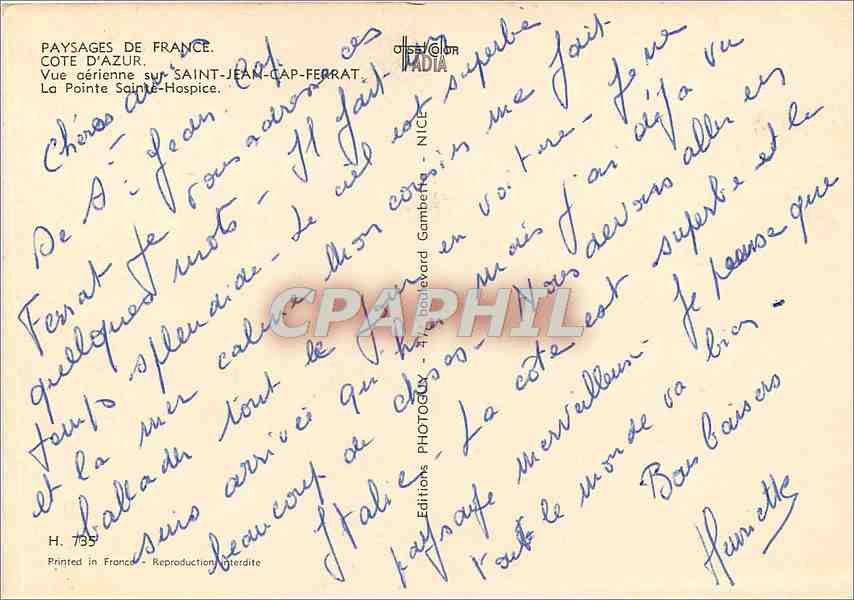 PAYSAGES DE FRANCE.
COTE D'AZUR.
Vue aérienne sur SAINT-JEAN-CAP-FERRAT.
La Pointe Sainte-Hospice.
OFFSET COLOR
IRIS
ADIA
Chères amies
De St Jean Cap
Ferrat je vous adresse ces
quelques mots - Il fait un
temps splendide - Le ciel est superbe
et la mer calme Mon cousin me fait
ballader tout le jour en voiture - Je ne
suis arrivée qu'hier mais j'ai déjà vu
beaucoup de choses - Nous devons aller en
Italie - La côte est superbe et le
paysage merveilleux - Je pense que
tout le monde va bien -
Bons baisers
Henriette
Editions PHOTOGUY - 47, boulevard Gambetta - NICE
CPAPHIL
H. 735
Printed in France - Reproduction interdite